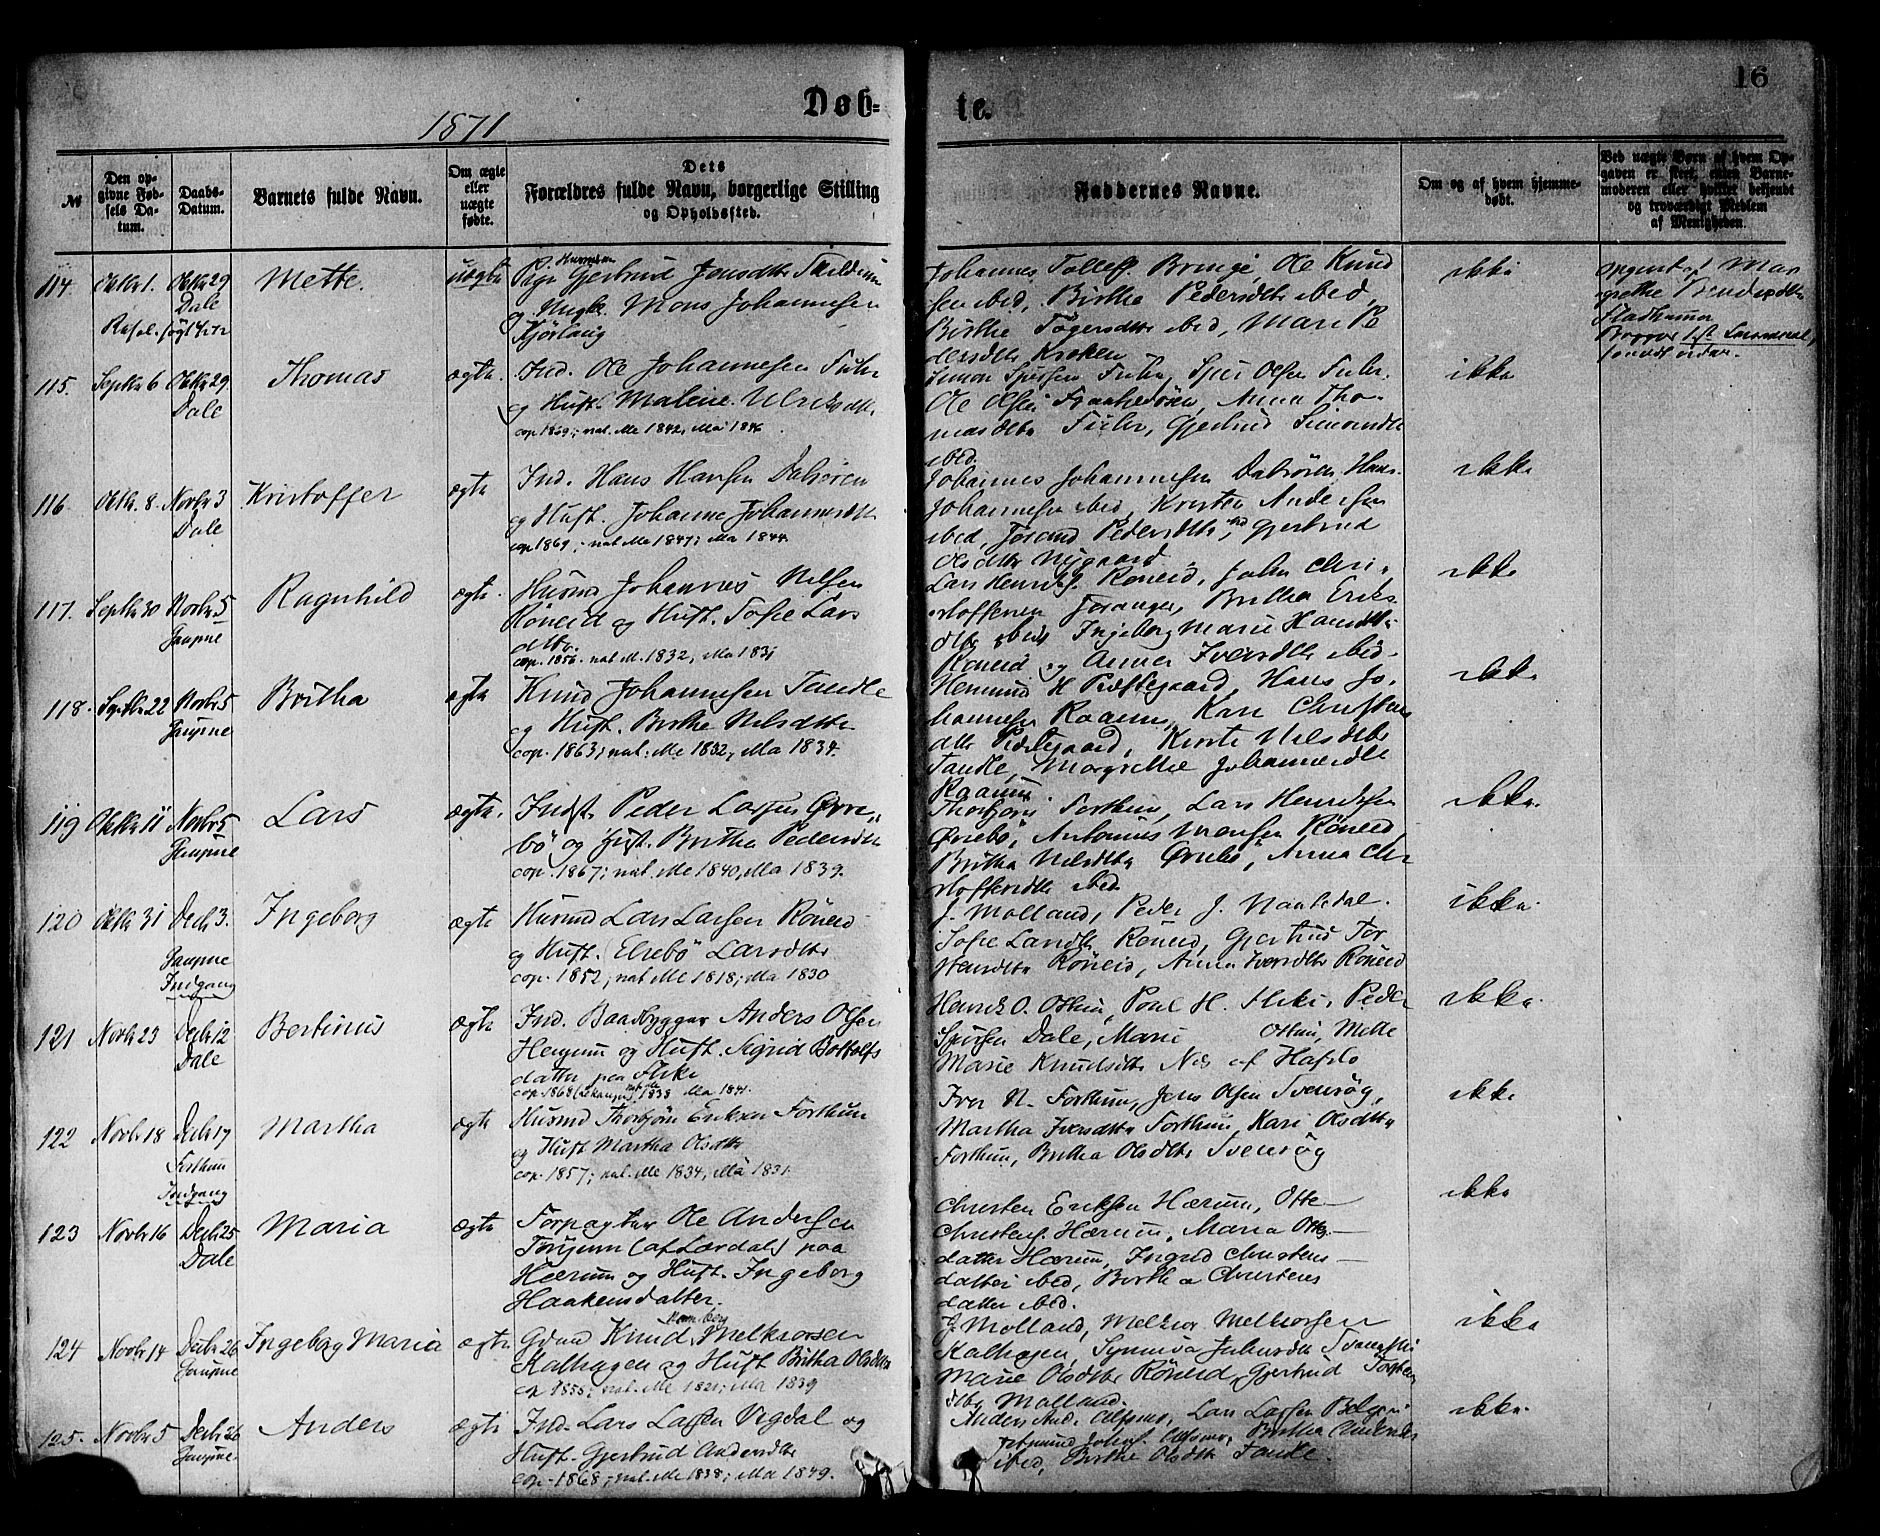 16
Døb-
te.
1871
№
Den op-
givne Fød-
sels Da-
tum.
Daabs-
Datum.
Barnets fulde Navn.
Om ægte
eller
uægte
fødte.
Dets
Forældres fulde Navn, borgerlige Stilling
og Opholdssted.
Faddernes Navne.
Om og af hvem hjemme-
døbt.
Ved uægte Børn af hvem Op-
gaven er skeet, enten Barne-
moderen eller hvilket bekjendt
og troværdigt Medlem
af Menigheden.
114
Oktbr 1.
Oktbr 29
Dale
Mette.
uægte
Pige Gjertrud Jensdtr
og Ungk. Mons Johannesen
Kjørlaug
Johannes Tollefs. Bringe, Ole Knud
sen ibid, Birthe Pedersdtr ibid,
Birthe Tøgersdtr ibid, Mari Pe
dersdtr Kroken
ikke
115.
Septbr 6
Oktbr 29.
Dale
Thomas
ægte.
Ind. Ole Johannesen Fuhr
og Hust. Malene Ulriksdtr
cop. 1869; nat. Me 1842, Ma 1846
Simon Sjursen Fuhr, Sjur Olsen Fuhr.
Ole Olsen, Anna Tho-
masdtr Fuhr, Gjertrud Simonsdtr
ibid.
ikke
116.
Oktbr. 8.
Novbr 3
Dale
Kristoffer
ægte
Ind. Hans Hansen Dalsøren
og Hust. Johanne Johannesdtr
cop 1869; nat. Me 1847; Ma 1844.
Johannes Johannesen Dalsøren, Hans
Johannesen ibid, Kristen Andersen
ibid, Pedersdtr ibid, Gjertrud
Olsdtr Nygaard.
ikke
117.
Septbr 30
Novbr 5
Gaupne
Ragnhild
ægte.
Husmd Johannes Nilsen
Røneid og Hust. Sofie Lars
dtr.
cop. 1856. nat. M. 1832, Ma 1831
Lars Henriks. Røneid, John Chri-
stoffersen, Britha Eriks
dtr ibid, Ingeborg Marie Hansdtr
Røneid og Anna Iversdtr ibid.
ikke
118.
Septbr 22
Novbr 5
Gaupne
Britha
ægte
Knud Johannesen Tandle
og Hust. Birthe Nilsdtr
cop. 1863; nat. Me 1832, Ma 1834.
H Præstegaard, Hans Jo-
hannesen Raaum, Kari Christens
dtr Præstegaard, Kirsti Nilsdtr
Tandle, Margrethe Johannesdtr
Raaum.
ikke
119
Oktbr 11
Novbr 5
Gaupne
Lars
ægte.
Indst. Peder Larsen Øvre-
bø og Hust. Britha Pedersdtr
cop. 1867; nat. Me 1840, Ma 1839.
Thorbjørn Forthun, Lars Henriksen
Ørebø, Antonius Monsen Røneid,
Britha Nilsdtr Ørebø, Anna Chr
stoffersdtr ibid.
ikke.
120
Oktbr 31
Decbr 3.
Gaupne
Indgang
Ingeborg
ægte
Husmd Lars Larsen Røneid
og Hust. Elsebø Larsdtr
cop. 1852; nat. Me 1818; Ma 1830
J. Molland, Peder J.
Sofie Larsdtr Røneid, Gjertrud Tor
stensdtr Røneid, Anna Iversdtr Røneid
ikke.
121
Novbr 23
Decbr 12
Dale
Bertinus
ægte
Ind. Baadbygger Anders Olsen
Hengum og Hust. Sigrid Bottolfs
datter paa Flike
cop. 1868 1838 Ma 1841.
Henrik O. Ottum, Poul H. Flike, Peder
Sjursen Dale, Marie Ottum, Mette
Marie Knudsdtr Nes af Hafslo
ikke.
122
Novbr 18
Decbr 17
Forthun
Indgang
Martha
ægte
Husmd Thorbjørn Eriksen Forthun
og Hust Martha Olsdtr
cop. 1857; nat. Me 1834, Ma 1831.
Iver N. Forthun, Jens Olsen Svensøg,
Martha Iversdtr Forthun, Kari Olsdtr
Forthun, Britha Olsdtr Svensøg
ikke
123
Novbr 16
Decbr 25
Dale
Maria
ægte
Forpagter Ole Andersen
Tønjum (af Lærdal) paa
Hærum og Hust. Ingeborg
Haakensdatter.
Christen Eriksen Hærum, Otte
Christens. Hærum, Maria Otte-
datter Hærum, Ingrid Christens-
datter ibid, Birtha Christens
datter ibid.
ikke
124
Novbr 14
Decbr 26
Gaupne
Ingeborg Maria
ægte.
Gdmd Knud Melkiorsen
Kalhagen og Hust Britha Olsdtr
cop 1855; nat. Me 1821; Ma 1839
J. Molland, Melkior Melkiorsen
Kalhagen, Synneva Johnsdtr
Marie Olsdtr Røneid, Gjertrud Torsten
dtr Molland.
ikke
125.
Novbr 5
Decbr 26
Gaupne.
Anders
ægte
Ind. Lars Larsen Vigdal og
Hust. Gjertrud Andersdtr
cop. 1868; nat. Me 1838; Ma 1849.
Anders And. Alsmo, Lars Larsen
Johs. Alsmo, Britha Andersdtr
ibid, Birthe Olsdtr Tandle.
ikke.